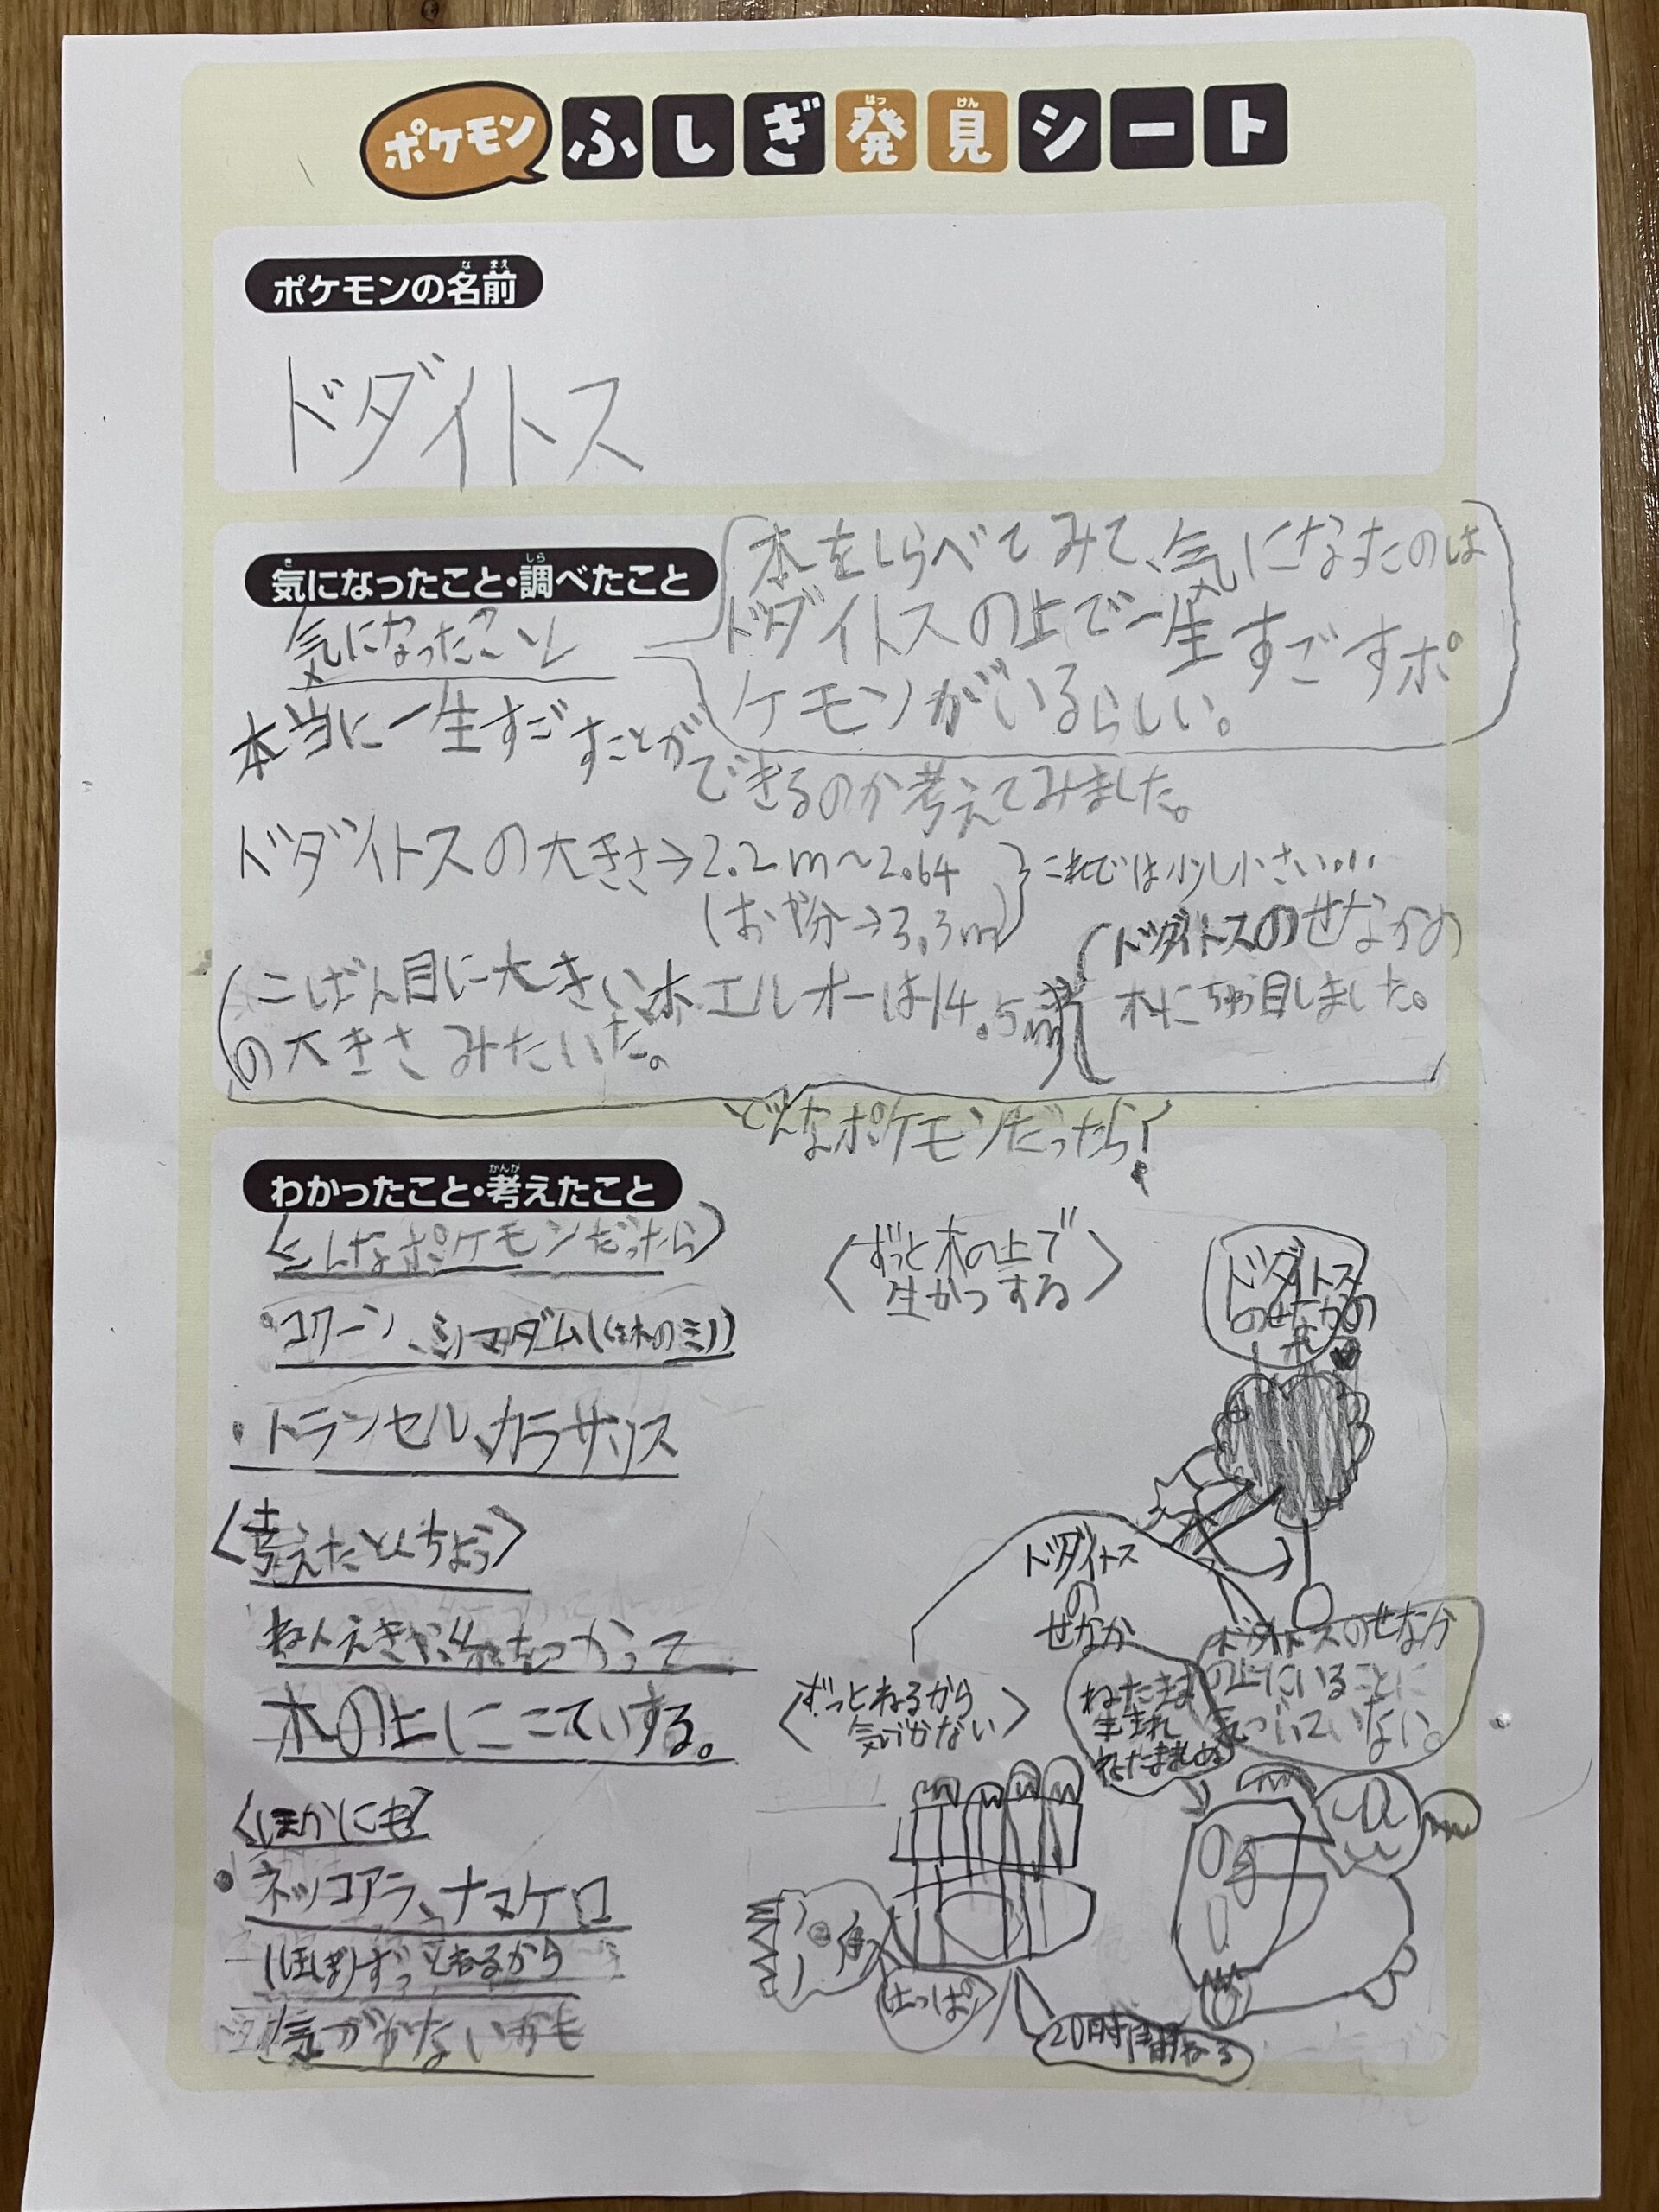 ポケモン ふしぎ発見シート
ポケモンの名前
ドダイトス
気になったこと・調べたこと
気になったこと
本をしらべてみて、気になったのは
ドダイトスの上で一生すごすポ
ケモンがいるらしい。
本当に一生すごすことが
できるのか考えてみました。
ドダイトスの大きさ→2.2m～2.64
(おや分→3.3m)
これでは少し小さい...
ドダイトスのせなかの
木にちゃく目しました。
(こばん目に大きいホエルオーは14.5m
の大きさみたいだ。
どんなポケモンだったら?
わかったこと・考えたこと
〈こんなポケモンだったら〉
・コクーン、シマダム(くさ木のミノ)
・トランセル、カラサリス
〈考えたとくちょう〉
ねんえきか糸をつかって
木の上にこていする。
〈ほかにも〉
・ネッコアラ、ナマケロ
(ほぼ)ずっとねるから
気がつかないかも
〈ずっと木の上で
生かつする〉
ドダイトス
のせなかの
木
ドダイトス
の
せなか
〈ずっとねるから
気づかない〉
ねたまま
生まれ
ねたまましぬ
ドダイトスのせなか
の上にいることに
気づいていない。
はっぱ
20時間ねる